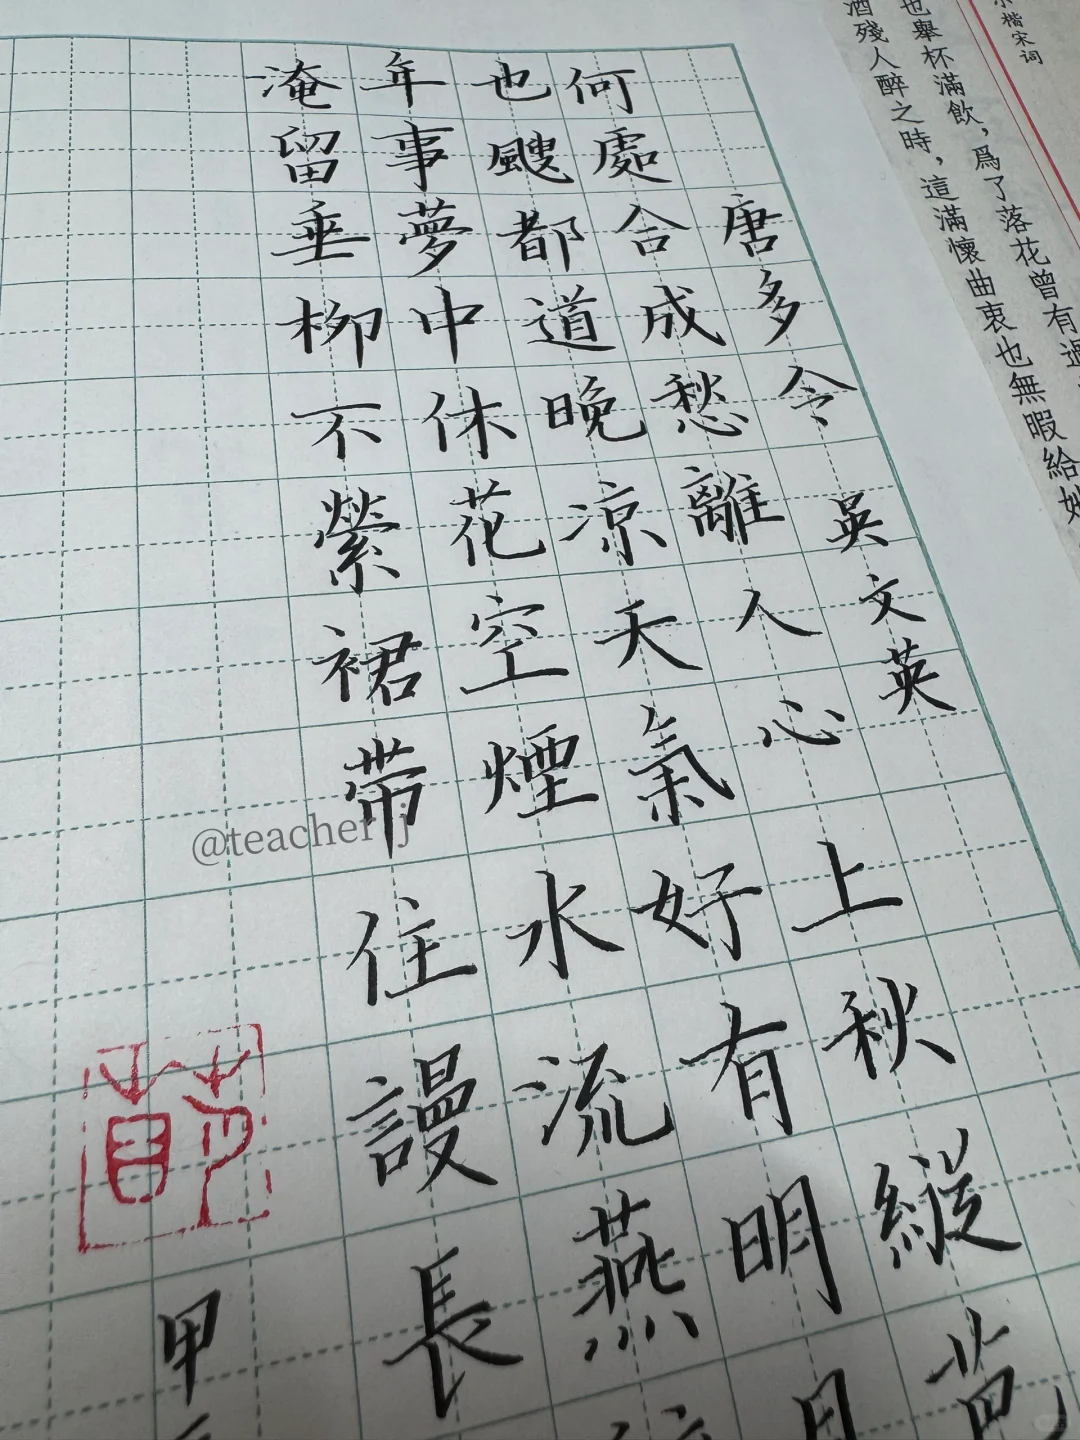 小楷宋词
也舉杯滿飲，爲了落花曾有
酒殘人醉之時，這滿懷曲衷也無暇給
唐多令 吳文英
何處合成愁離人心上秋縱芭
也颼都道晚凉天氣好有明月
年事夢中休花空煙水流燕
淹留垂柳不縈裙帶住謾長
甲
@teacher